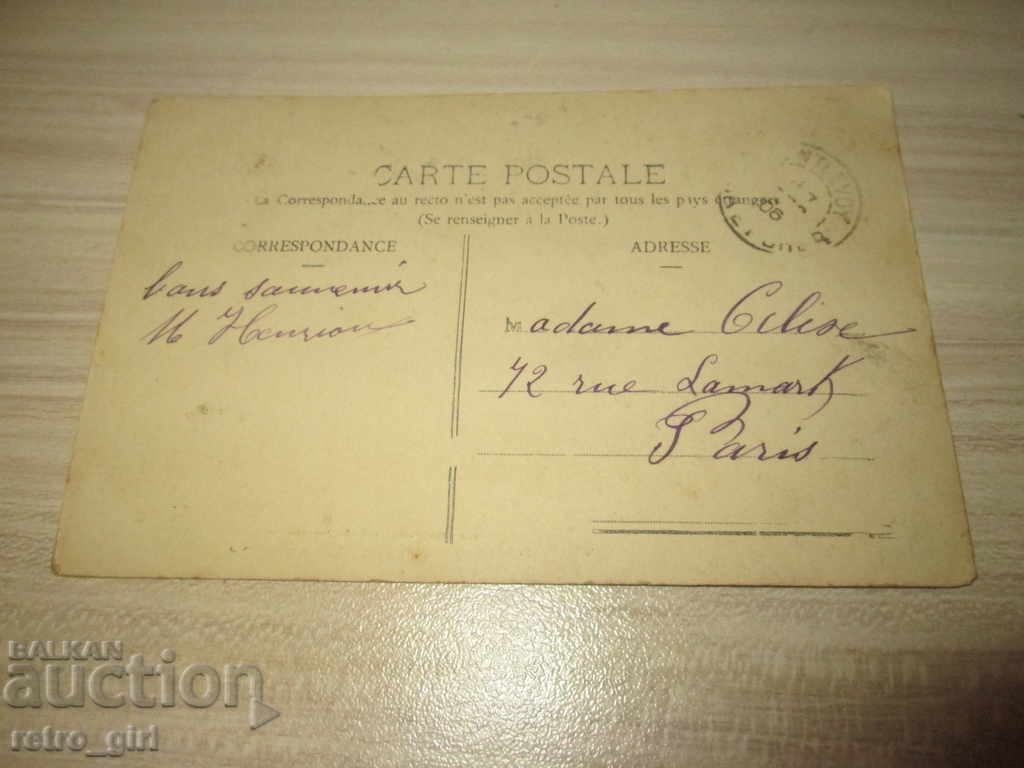 CARTE POSTALE
La Correspondance au recto n'est pas acceptée par tous les pays étrangers
(Se renseigner à la Poste.)
CORRESPONDANCE
bons souvenir
M Henrion
ADRESSE
Madame Celise
72 rue Lamark
Paris
06
BALKAN
auction
retro_girl